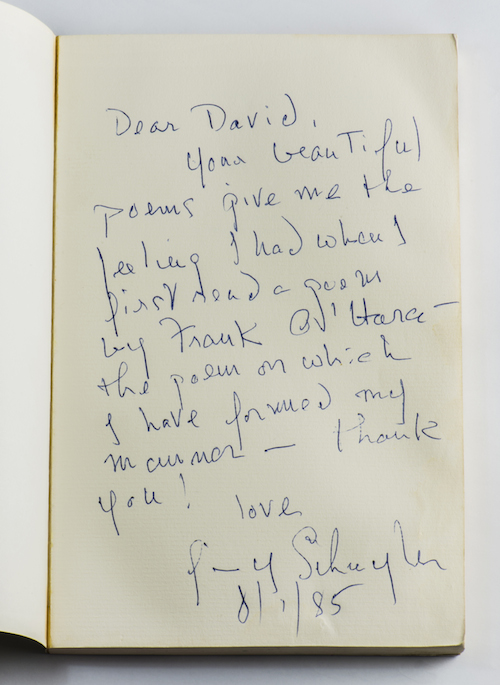 Dear David,
your beautiful
poems give me the
feeling I had when I
first read a poem
by Frank O'Hara —
the poem on which
I have formed my
manner — thank
you!
love
Schuyler
8/1/85